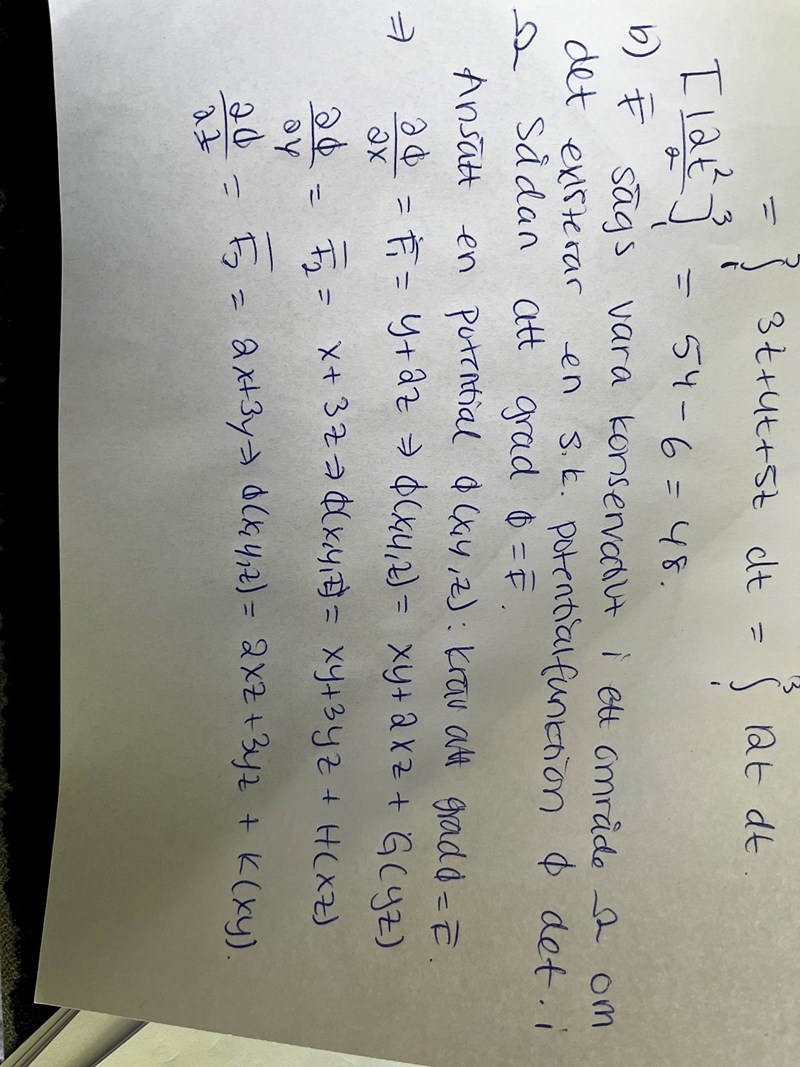 = ∫₁³ 3t+4t+5t dt = ∫₁³ 12t dt.
[12t²/2]₁³ = 54 - 6 = 48.
b) F̄ sägs vara konservativt i ett område Ω om
det existerar en s.k. potentialfunktion ϕ det. i
Ω sådan att grad ϕ = F̄.
Ansätt en potential ϕ(x,y,z): kräv att gradϕ = F̄.
⇒ ∂ϕ/∂x = F̄₁ = y+2z ⇒ ϕ(x,y,z) = xy+2xz + G(yz)
∂ϕ/∂y = F̄₂ = x+3z ⇒ ϕ(x,y,z) = xy+3yz + H(xz)
∂ϕ/∂z = F̄₃ = 2x+3y ⇒ ϕ(x,y,z) = 2xz+3yz + K(xy).